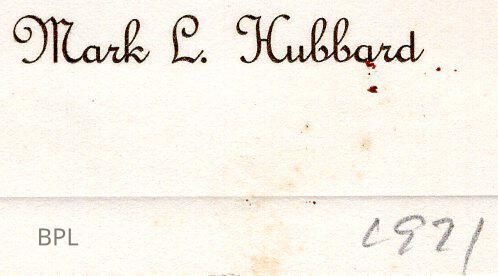 Mark L. Hubbard
BPL
1971